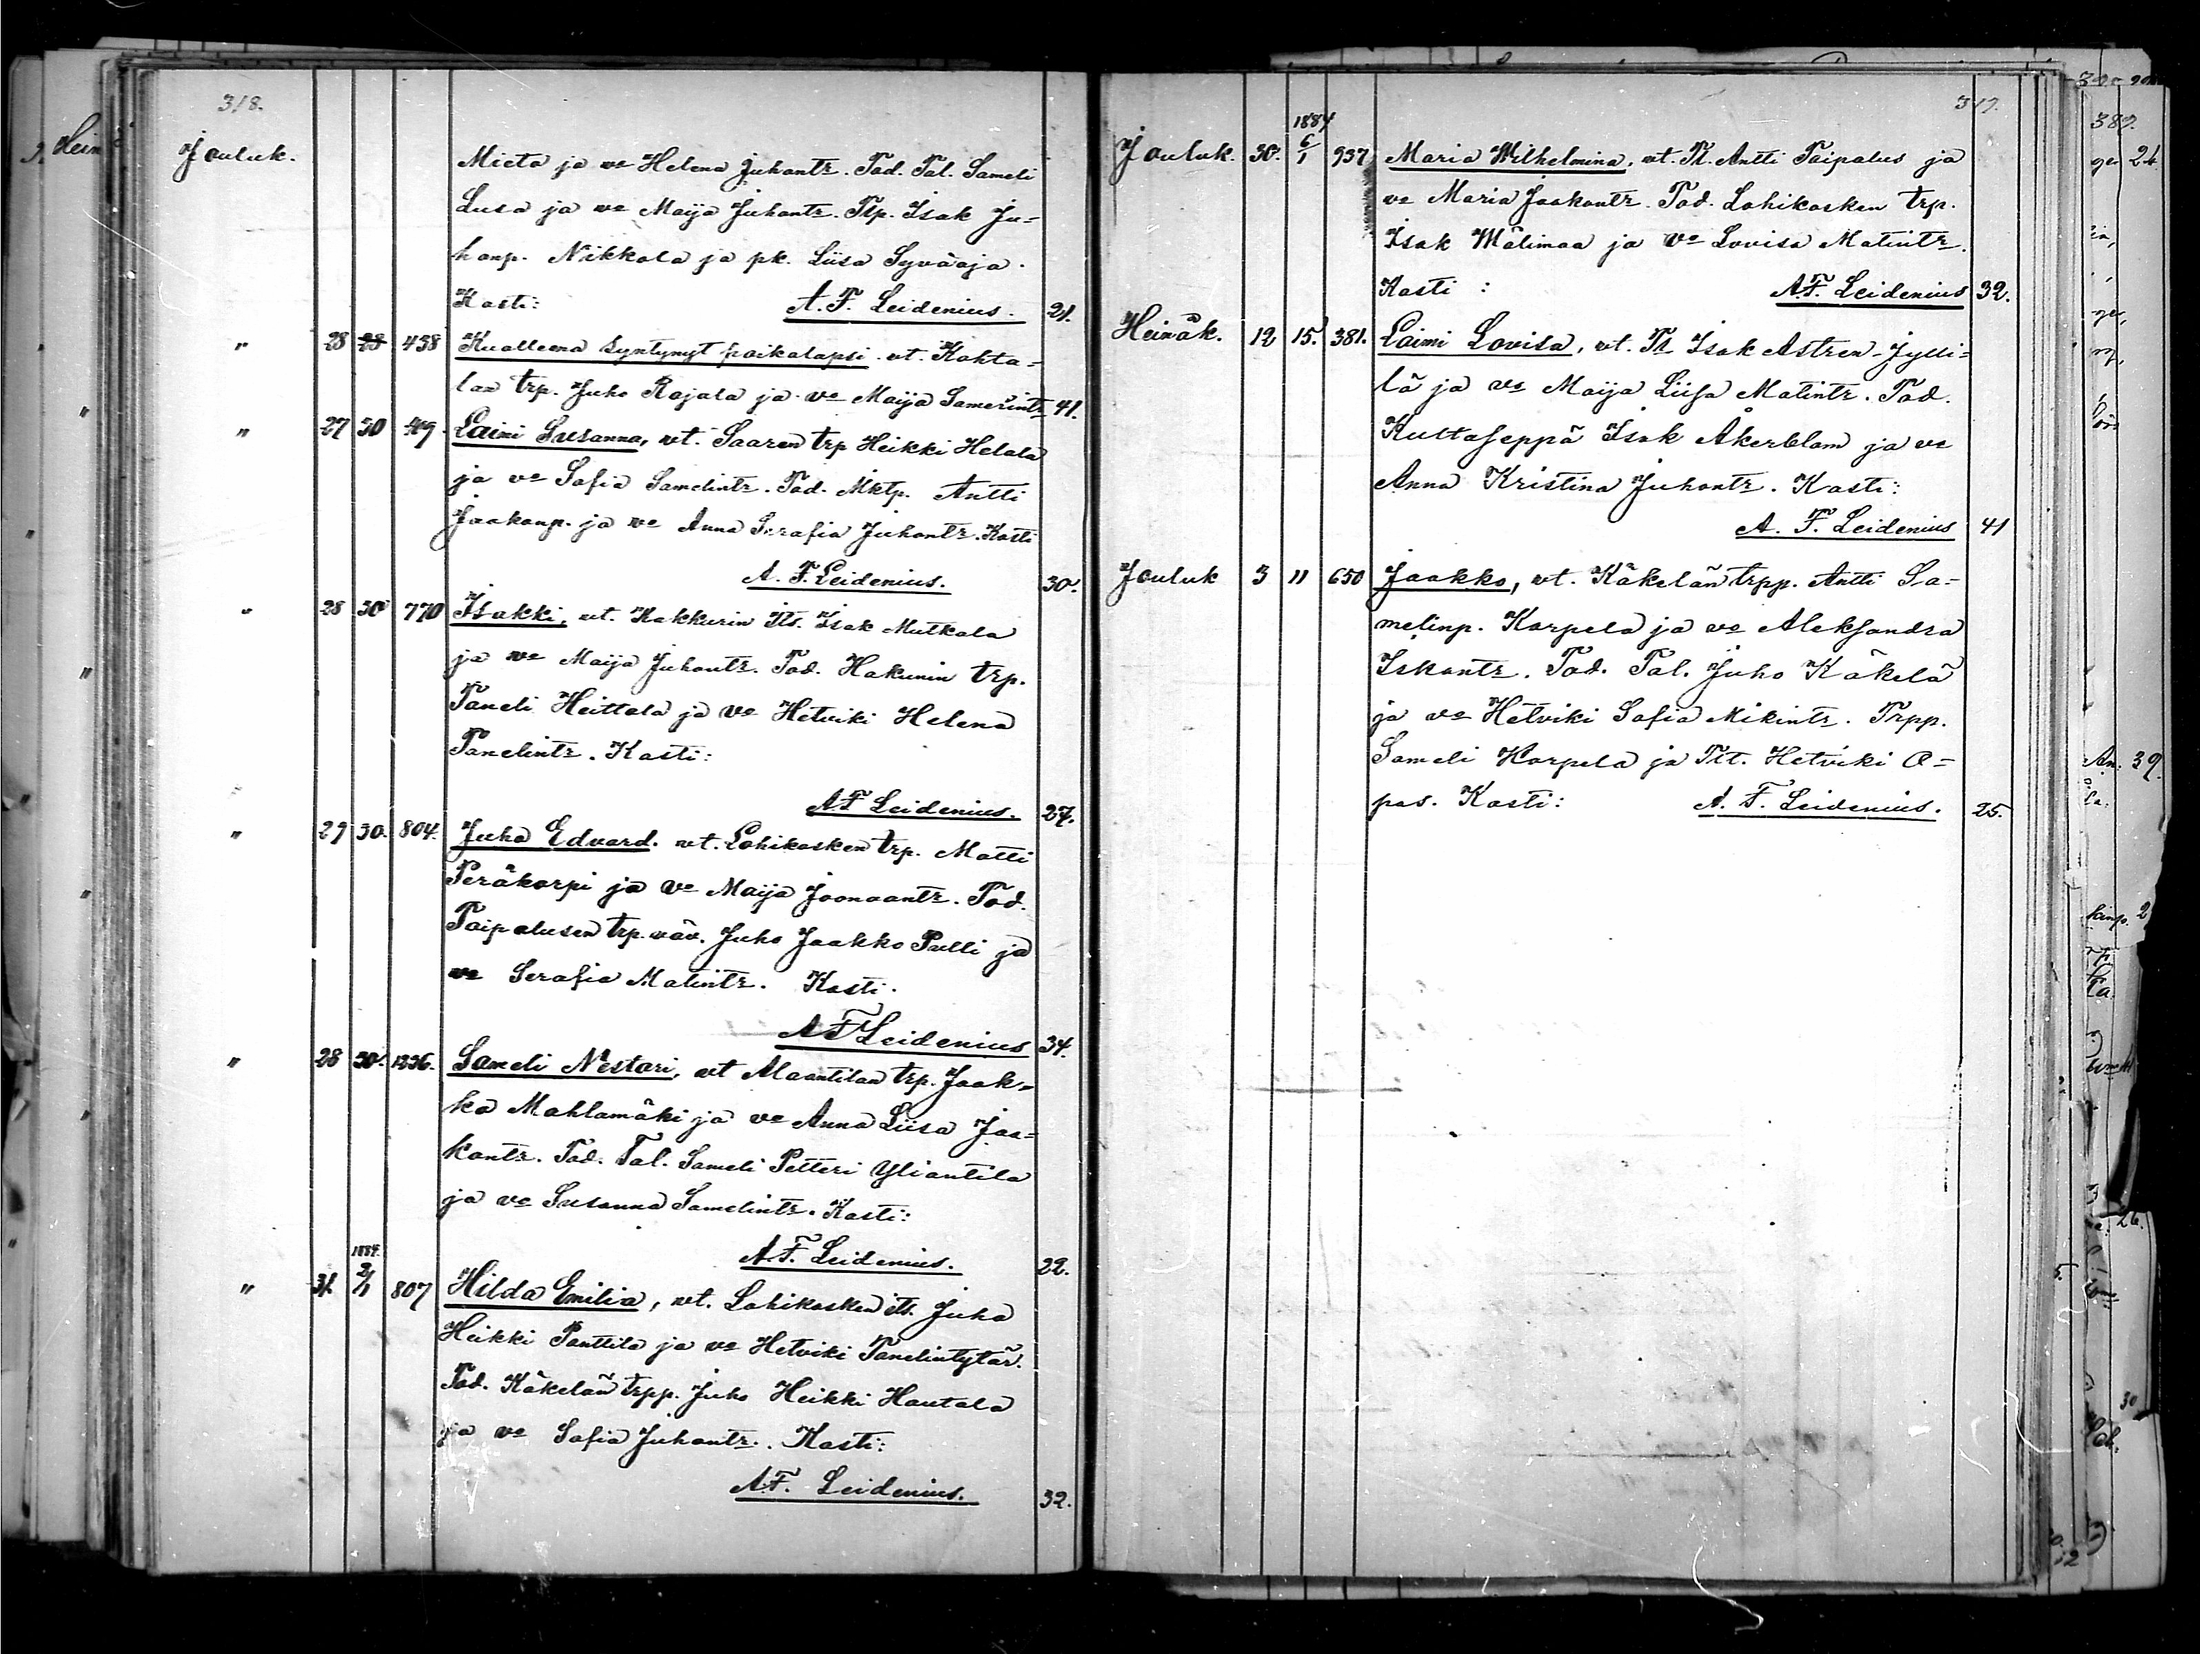 318.
Jouluk.
Mieto ja vo Helena Juhontr. Tod. Tal. Sameli
Lusa ja vo Maija Juhontr. Tlp. Isak Ju-
honp. Nikkola ja pk. Liisa Syväoja.
Kasti: A. F. Leidenius. 21.
" 28 28 438 Kuolleena syntynyt poikalapsi. vt. Kokta-
lan trp. Juho Rajala ja vo Maija Samelintr 41.
" 27 30 419. Laini Susanna, vt. Saaren trp Heikki Helala
ja vo Sofia Samelintr. Tod. Mktp. Antti
Jaakonp. ja vo Anna Serafia Juhontr. Kasti
A. F. Leidenius. 30.
" 28 30 770 Isakki, vt. Kakkurin Its. Isak Mutkala
ja vo Maija Juhontr. Tod. Hakunin trp.
Taneli Heittola ja vo Hetviki Helena
Tanelintr. Kasti:
A F Leidenius. 27.
" 29 30. 804. Juho Edvard. vt. Lohikosken trp. Matti
Peräkorpi ja vo Maija Joonaantr. Tod.
Taipalusen trp. väv. Juho Jaakko Pulli ja
vo Serafia Matintr. Kasti.
A F Leidenius 34.
" 28 30. 1336. Sameli Nestori, vt Alaantilan trp. Jaak-
ko Mahlamäki ja vo Anna Liisa Jaa-
kontr. Tod. Tal. Sameli Petteri Yliantila
ja vo Susanna Samelintr. Kasti:
A. F. Leidenius. 22.
1884.
" 31 2/1 807 Hilda Emilia, vt. Lohikosken its. Juho
Heikki Panttila ja vo Hetviki Tanelintytär.
Tod. Käkelän trpp. Juho Heikki Hautala
ja vo Sofia Juhontr. Kasti:
A. F. Leidenius. 32.
319.
1884
Jouluk. 30. 6/1 937 Maria Wilhelmina, vt. Tl. Antti Taipalus ja
vo Maria Jaakontr. Tod. Lohikosken trp.
Isak Wälimaa ja vo Lovisa Matintr.
Kasti : A. F. Leidenius 32.
Heinäk. 12 15. 381. Laimi Lovisa, vt. Tl Isak Astren-Jylli-
lä ja vo Maija Liisa Matintr. Tod.
Kultaseppä Isak Åkerblom ja vo
Anna Kristina Juhontr. Kasti:
A. F. Leidenius 41
Jouluk 3 11 650 Jaakko, vt. Käkelän trpp. Antti Sa-
melinp. Korpela ja vo Aleksandra
Iskontr. Tod. Tal. Juho Käkelä
ja vo Hetviki Sofia Mikintr. Trpp.
Sameli Korpela ja Tlt. Hetviki O-
pas. Kasti: A. F. Leidenius. 25.